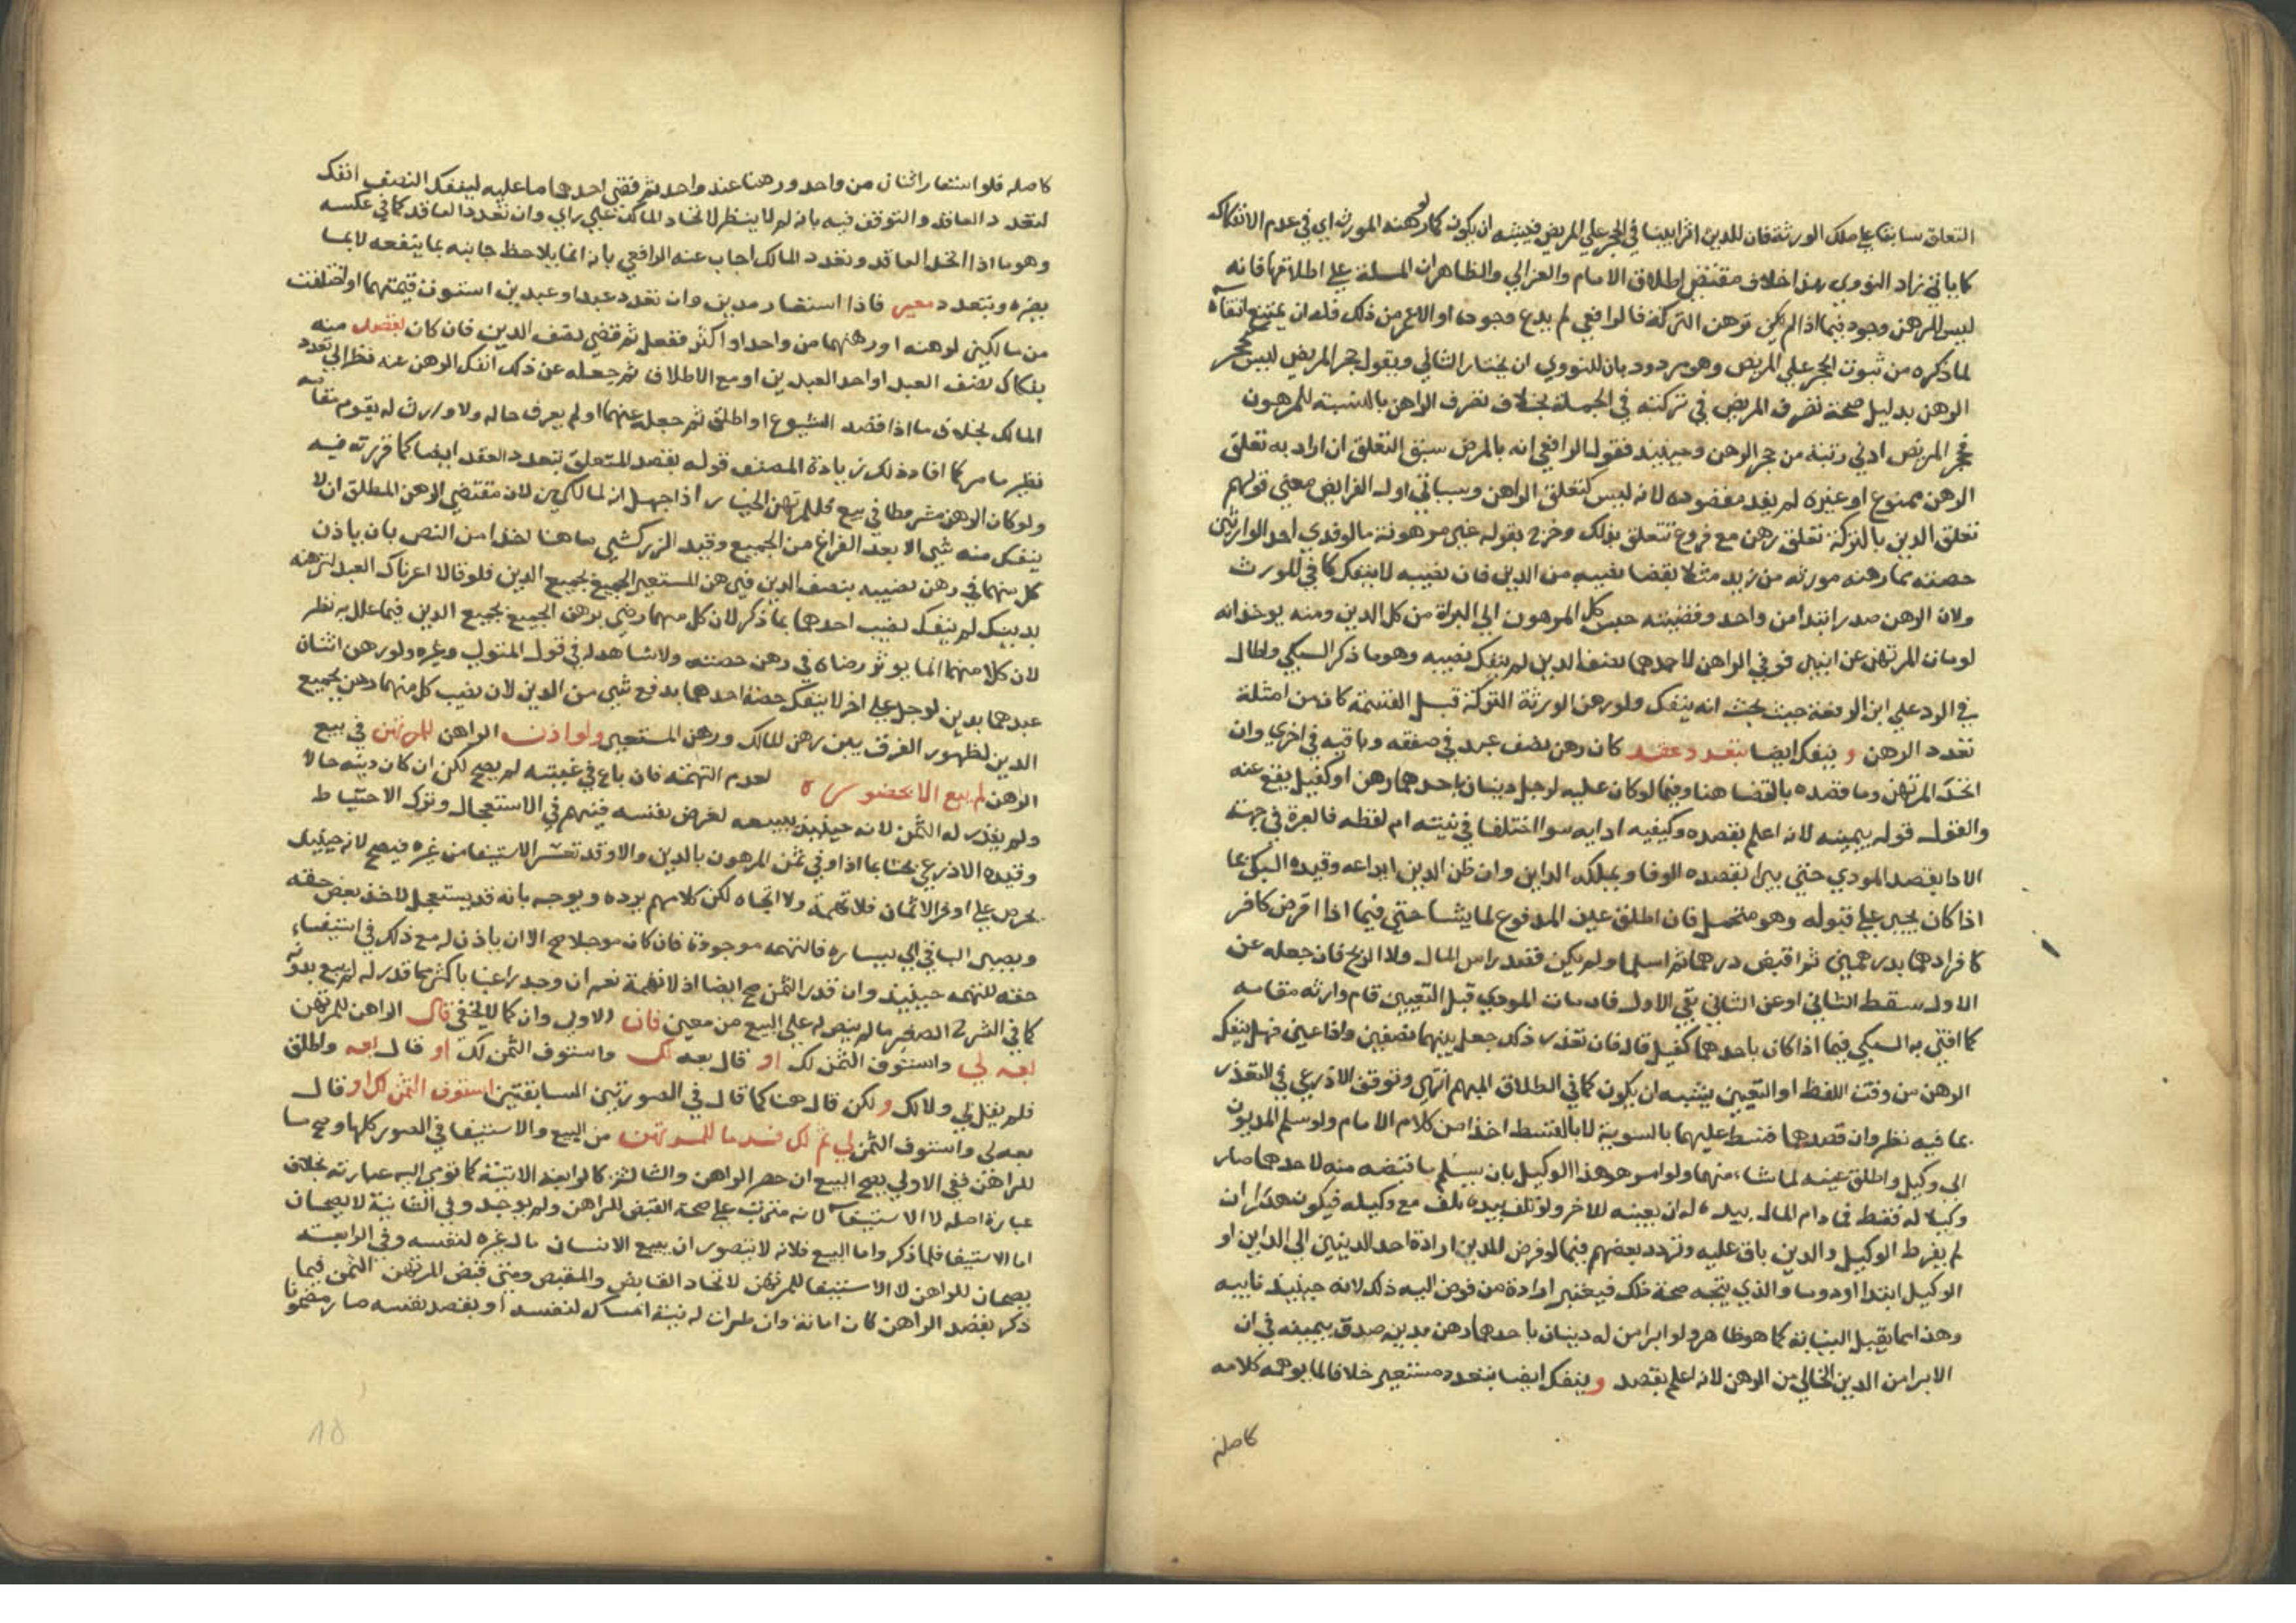 التعلق سابقا على ملك الورثة فان للدين اثرا بينا في الحجر على المريض فيشبه ان يكون كما لو رهنه المورث اي في عدم الانفكاك
كما ياتي زاد النووي بهذا خلاف مقتضى اطلاق الامام والغزالي والظاهر ان المسلة على اطلاقها فانه
ليس للرهن وجود فيما اذا لم يكن توهن التركة فالرافعي لم يدع وجوده او الاعم من ذلك فله ان يمتنع
لما ذكره من ثبوت الحجر على المريض وهو مردود بان للنووي ان يختار الثاني ويقول حجر المريض ليس كحجر
الرهن بدليل صحة تصرف المريض في تركته في الجملة بخلاف تصرف الراهن بالنسبة للمرهون
فحجر المريض ادنى رتبة من حجر الرهن وحينيذ فقول الرافعي انه بالمرض سبق التعلق ان اراد به تعلق
الرهن ممنوع او غيره لم يفد مقصوده لانه ليس كتعلق الراهن وسياتي اول الفرايض معنى قولهم
تعلق الدين بالتركة تعلق رهن مع فروع تتعلق بذلك وخرج بقوله غير مرهونة ما لو فدى احد الوارثين
حصته مما رهنه مورثه من زيد مثلا بقضا نصيبه من الدين فان نصيبه لا ينفك كما في المورث
ولان الرهن صدر ابتدا من واحد وقضيته حبس كل المرهون الى البراة من كل الدين ومنه يوخذ انه
لو مات المرتهن عن ابنين فوفى الراهن لاحدهما نصف الدين لم ينفك نصيبه وهو ما ذكر السبكي واطال
في الرد على ابن الرفعة حيث بحث انه ينفك ولو رهن الورثة التركة قبل القسمة كان من امثلة
تعدد الرهن و ينفك ايضا بتعدد عقد كان رهن نصف عبد في صفقه وباقيه في اخرى وان
اتحد المرتهن وما قصده بالقضا هنا وفيما لو كان عليه لرجل دينان باحدهما رهن او كفيل يقع عنه
والقول قوله بيمينه لانه اعلم بقصده وكيفيه ادايه سوا اختلفا في نيته ام لفظه فالعبرة في جهة
الادا بقصد المودي حتى يبرا بقصده الوفا ويملكه الداين وان ظن الدين ايداعه وقيده السبكي بما
اذا كان يجبر على قبوله وهو محتمل فان اطلق عين المدفوع لما يشا حتى فيما اذا اقرض كافر
كافرا درهما بدرهمين ثم اقبض درهما ثم اسلما ولم يكن قصد راس المال ولا الربح فان جعله عن
الاول سقط الثاني او عن الثاني بقي الاول فان مات المودي قبل التعيين قام وارثه مقامه
كما افتى به السبكي فيما اذا كان باحدهما كفيل قال فان تعذر ذلك جعل بينهما نصفين واذا عين فهل ينفك
الرهن من وقت اللفظ او التعيين يشبه ان يكون كما في الطلاق المبهم انتهى وتوقف الاذرعي في التعذر
بما فيه نظر وان قصدهما قسط عليهما بالسوية لا بالقسط اخذا من كلام الامام ولو سلم المديون
الى وكيل واطلق عينه لما شاء منهما ولو امر هو هذا الوكيل بان يسلم ما قبضه منه لاحدهما صار
وكيلا له فقط فما دام المال بيده له ان يعينه للاخر ولو تلف بيده تلف مع وكيله فيكون هدرا ان
لم يفرط الوكيل والدين باق عليه وتردد بعضهم فيما لو فوض المدين ارادة احد الدينين الى الداين او
الوكيل ابتدا او دوما والذي يتجه صحة ذلك فيعتبر ارادة من فوض اليه ذلك لانه حينيذ نايبه
وهذا مما يقبل النيابة كما هو ظاهر ولو ابرا من له دينان باحدهما رهن مدينه صدق بيمينه في ان
الابرا من الدين الخالي من الرهن لانه اعلم بقصده و ينفك ايضا بتعدد مستعير خلافا لما يوهمه كلامه
كاصله
كاصله فلو استعار اثنان من واحد ورهنا عند واحد ثم قضى احدهما ما عليه لينفك النصف انفك
لتعدد العاقد والتوقف فيه بانه لم لا ينظر لاتحاد المالك على راي وان تعدد العاقد كما في عكسه
وهو ما اذا اتحد العاقد وتعدد المالك اجاب عنه الرافعي بانه انما يلاحظ جانبه بما ينفعه لا بما
يضره ويتعدد معير فاذا استعار مدين وان تعدد عبدا او عبدين استوت قيمتهما او اختلفت
من مالكين لرهنه او رهنهما من واحد او اكثر ففعل ثم قضى نصف الدين فان كان بقصد منه
بفكاك نصف العبد او احد العبدين او مع الاطلاق ثم جعله عن ذلك انفك الرهن عنه نظرا الى تعدد
المالك بخلاف ما اذا قصد الشيوع او اطلق ثم جعله عنهما او لم يعرف حاله ولا وارث له يقوم مقامه
نظير ما مر كما افاد ذلك زيادة المصنف قوله بقصد المتعلق بتعدد العقد ايضا كما قررته فيه
ولو كان الرهن مشروطا في بيع فللمرتهن الخيار اذا جهل انه لمالكين لان مقتضى الرهن المطلق ان لا
ينفك منه شي الا بعد الفراغ من الجميع وقيد الزركشي ما هنا اخذا من النص بان ياذن
كل منهما في رهن نصيبه بنصف الدين فيرهن المستعير الجميع بجميع الدين فلو قالا اعرناك العبد لترهنه
بدينك لم ينفك نصيب احدهما بما ذكر لان كل منهما رضي برهن الجميع بجميع الدين فيما علل به نظر
لان كلا منهما انما يوثر رضاه في رهن حصته ولا شاهد له في قول المتولي وغيره ولو رهن اثنان
عبدهما بدين لرجل على اخر لا ينفك حصة احدهما بدفع شي من الدين لان نصيب كل منهما رهن بجميع
الدين لظهور الفرق بين رهن المالك ورهن المستعير ولو اذن الراهن للمرتهن في بيع
الرهن لم يبع الا بحضوره لعدم التهمة فان باع في غيبته لم يصح لكن ان كان دينه حالا
ولم يقدر له الثمن لانه حينيذ يبيعه لغرض نفسه فيتهم في الاستعجال وترك الاحتياط
وقيده الاذرعي بحثا بما اذا وفى ثمن المرهون بالدين والا وقد تعسر الاستيفا من غيره فيصح لانه حينيذ
يحرص على اوفر الاثمان فلا تهمة ولا اتجاه لكن كلامهم يرده ويوجه بانه قد يستعجل لاخذ بعض حقه
ويصير الباقي الى يساره فالتهمة موجودة فان كان موجلا صح الا ان ياذن له مع ذلك في استيفاء
حقه للتهمة حينيذ وان قدر الثمن صح ايضا اذ لا تهمة نعم ان وجد راغبا باكثر مما قدر له لم يبع بدونه
كما في الشرح الصغير ما لم ينص له على البيع من معين فان الاول وان كما لا يخفى قال الراهن للمرتهن
بعه لي واستوف الثمن لك او قال بعه لك واستوف الثمن لك او قال بعه واطلق
فلم يقل لي ولا لك و لكن قال هنا كما قال في الصورتين السابقتين استوف الثمن لك او قال
بعه لي واستوف الثمن لي ثم لك فسد ما للمرتهن من البيع والاستيفا في الصور كلها وصح ما
للراهن ففي الاولى يصح البيع ان حضر الراهن والثالثة كالرابعة الاتية كما تومي اليه عبارته بخلاف
عبارة اصله لا الاستيفا لانه مترتب على صحة القبض للراهن ولم يوجد وفي الثانية لا يصحان
اما الاستيفا فلما ذكر واما البيع فلانه لا يتصور ان يبيع الانسان مال غيره لنفسه وفي الرابعة
يصحان للراهن لا الاستيفا للمرتهن لاتحاد القابض والمقبض ومتى قبض المرتهن الثمن فيما
ذكر بقصد الراهن كان امانة وان طرات له نية امساك لنفسه او بقصد نفسه صار مضمونا
١٥